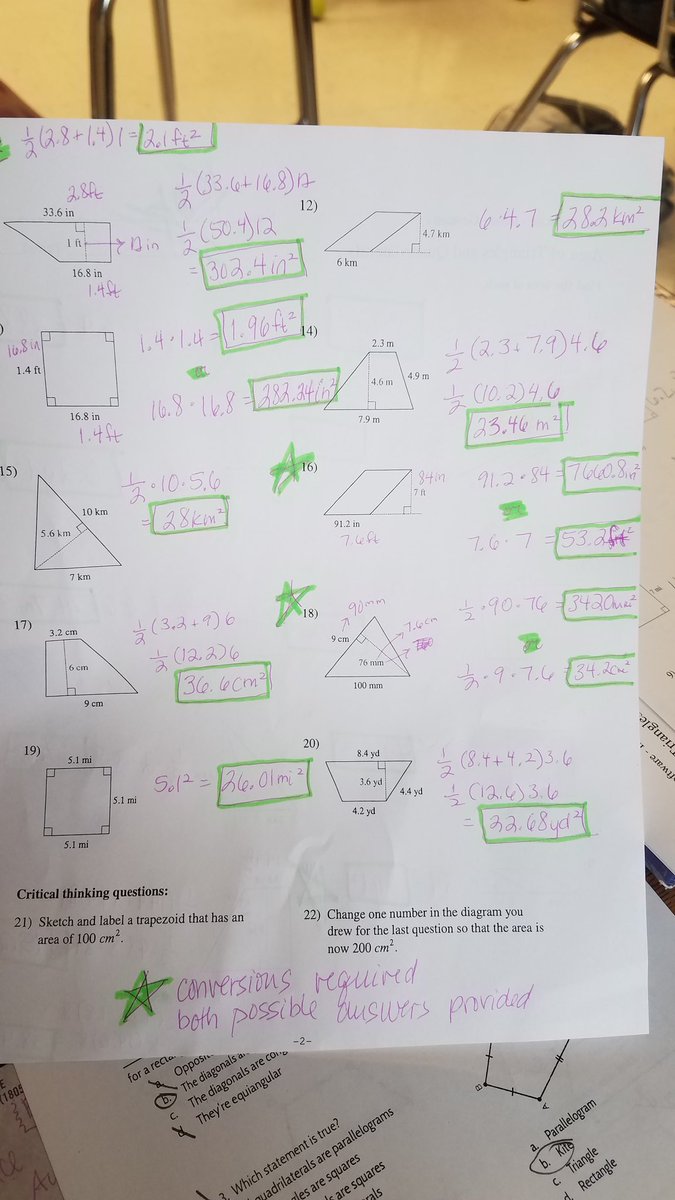 ½(2.8+1.4)1 = 2.1 ft²
2.8ft
33.6 in
1 ft
12 in
16.8 in
1.4ft
½(33.6+16.8)12
½(50.4)12
= 302.4 in²
12)
4.7 km
6 km
6·4.7 = 28.2 km²
16.8 in
1.4 ft
16.8 in
1.4ft
1.4·1.4 = 1.96 ft²
or
16.8·16.8 = 282.24 in²
14)
2.3 m
4.6 m
4.9 m
7.9 m
½(2.3+7.9)4.6
½(10.2)4.6
23.46 m²
15)
10 km
5.6 km
7 km
½·10·5.6
= 28 km²
16)
84in
7 ft
91.2 in
7.6ft
91.2·84 = 7660.8in²
or
7.6·7 = 53.2ft²
17)
3.2 cm
6 cm
9 cm
½(3.2+9)6
½(12.2)6
36.6cm²
18)
90mm
9 cm
7.6cm
76 mm
100 mm
½·90·76 = 3420mm²
or
½·9·7.6 = 34.2cm²
19)
5.1 mi
5.1 mi
5.1 mi
5.1² = 26.01 mi²
20)
8.4 yd
3.6 yd
4.4 yd
4.2 yd
½(8.4+4.2)3.6
½(12.6)3.6
= 22.68yd²
Critical thinking questions:
21) Sketch and label a trapezoid that has an
area of 100 cm².
22) Change one number in the diagram you
drew for the last question so that the area is
now 200 cm².
conversions required
both possible answers provided
-2-
for a
The diagonals
b.
c. The diagonals are
d. They're equiangular
3. Which statement is true?
quadrilaterals are parallelograms
are squares
are squares
B
A
a. Parallelogram
b. Kite
c. Triangle
Rectangle